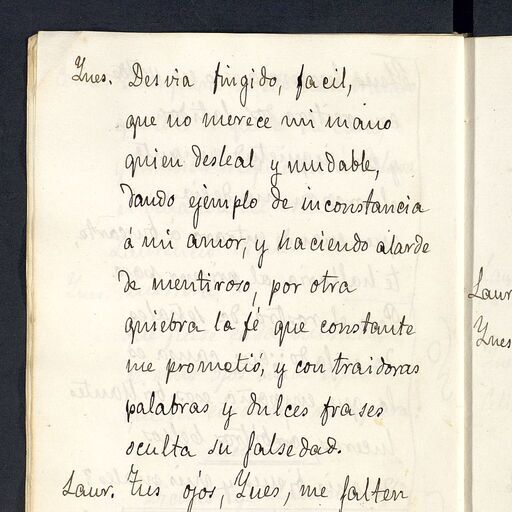 Ynes. Desvia fingido, facil,
que no merece mi mano
quien desleal y mudable,
dando ejemplo de inconstancia
á mi amor, y haciendo alarde
de mentiroso, por otra
quiebra la fé que constante
me prometió, y con traidoras
palabras y dulces frases
oculta su falsedad.
Laur. Tus ojos, Ynes, me falten
Laur
Ynes